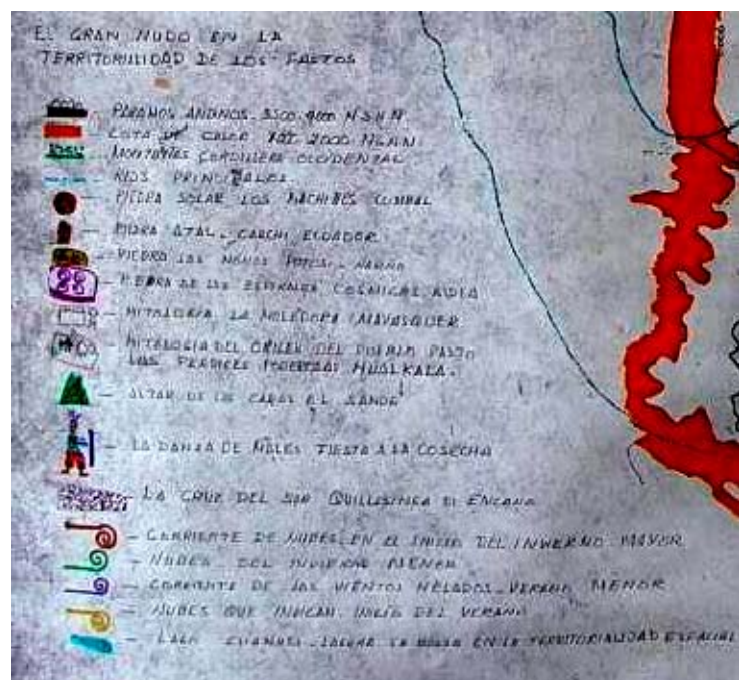 EL GRAN NUDO EN LA
TERRITORIALIDAD DE LOS PASTOS
PARAMOS ANDINOS 3500-4000
COTA DE CALOR 2000
MONTAÑAS CORDILLERA OCCIDENTAL
RIOS PRINCIPALES
PIEDRA SOLAR LOS MACHINES CUMBAL
PIEDRA CARCHI ECUADOR
PIEDRA LAS MONOS NARIÑO
PIEDRA DE LOS COSMICAS
MITOLOGIA LA MOLEDORA
MITOLOGIA DEL ORIGEN DEL PUEBLO PASTO
LAS PERDICES PODEROSAS
ALTAR DE LAS CARAS EL
LA DANZA DE MALES FIESTA A LA COSECHA
LA CRUZ DEL SUR QUILLASINGA EL ENCANO
CORRIENTE DE NUBES EN EL INICIO DEL INVIERNO MAYOR
NUBES DEL INVIERNO MENOR
CORRIENTE DE LOS VIENTOS HELADOS-VERANO MENOR
NUBES QUE INDICAN INICIO DEL VERANO
LAGO LAGUNA LA BOLSA EN LA TERRITORIALIDAD ESPACIAL